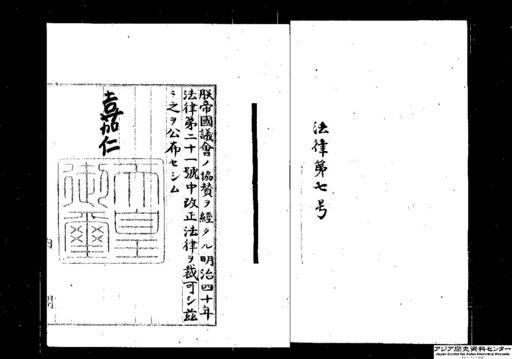 法律第七号
朕帝國議會ノ協賛ヲ經タル明治四十年
法律第二十一號中改正法律ヲ裁可シ茲
ニ之ヲ公布セシム
嘉仁
天皇
御璽
内
閣
アジア歴史資料センター
Japan Center for Asian Historical Records